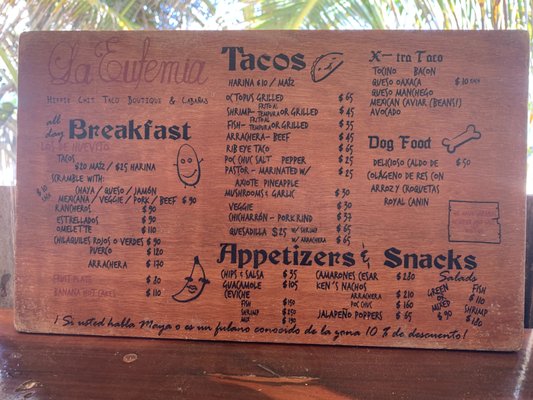 La Eufemia
Hippie Chit Taco Boutique & Cabañas
all day Breakfast
LOS DE HUEVITO
TACOS
$20 MAÍZ / $25 HARINA
SCRAMBLE WITH:
CHAYA / QUESO / JAMÓN
MEXICANA / VEGGIE / PORK / BEEF $90
RANCHEROS $90
ESTRELLADOS $90
OMELETTE $110
CHILAQUILES ROJOS O VERDES $90
PUERCO $120
ARRACHERA $170
FRUIT PLATE $20
BANANA HOT CAKES $110
Tacos
HARINA $10 / MAÍZ
OCTOPUS GRILLED $65
SHRIMP - FRITO AL TEMPURA OR GRILLED $45
FISH - FRITO AL TEMPURA OR GRILLED $35
ARRACHERA - BEEF $45
RIB EYE TACO $65
POC CHUC SALT PEPPER $25
PASTOR - MARINATED W/ $25
AXIOTE PINEAPPLE
MUSHROOMS & GARLIC $30
VEGGIE $30
CHICHARRÓN - PORK RIND $37
QUESADILLA $25 W/ SHRIMP $65
W/ ARRACHERA $65
X-tra Taco
TOCINO BACON
QUESO OAXACA $10 EACH
QUESO MANCHEGO
MEXICAN CAVIAR (BEANS!)
AVOCADO
Dog Food
DELICIOSO CALDO DE $50
COLÁGENO DE RES CON
ARROZ Y CROQUETAS
ROYAL CANIN
Appetizers & Snacks
CHIPS & SALSA $35
GUACAMOLE $105
CEVICHE
FISH $150
SHRIMP $250
MIX $190
CAMARONES CESAR $230
KEN'S NACHOS
ARRACHERA $210
POC CHUC $160
JALAPEÑO POPPERS $65
Salads
GREEN OR MIXED $90
FISH $110
SHRIMP $180
¡Si usted habla Maya o es un fulano conocido de la gana 10 % de descuento!